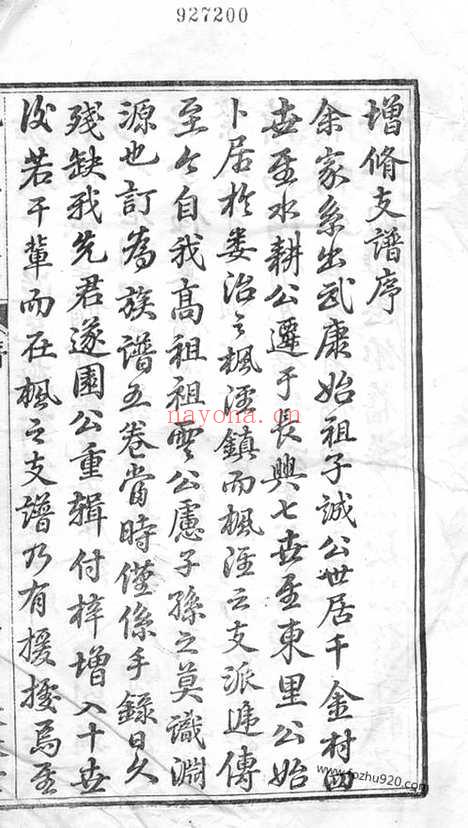 927200
增脩支譜序
余家系出武康始祖子誠公世居千金村四
世至水耕公遷于長興七世至東里公始
卜居於婁治之楓涇鎮而楓涇之支派遞傳
至今自我高祖祖雯公慮子孫之莫識淵
源也訂為族譜五卷當時僅係手錄日久
殘缺我先君遂園公重輯付梓增入十世
後若干輩而在楓之支譜乃有援據焉至
nayona.cn
www.fozhu920.com